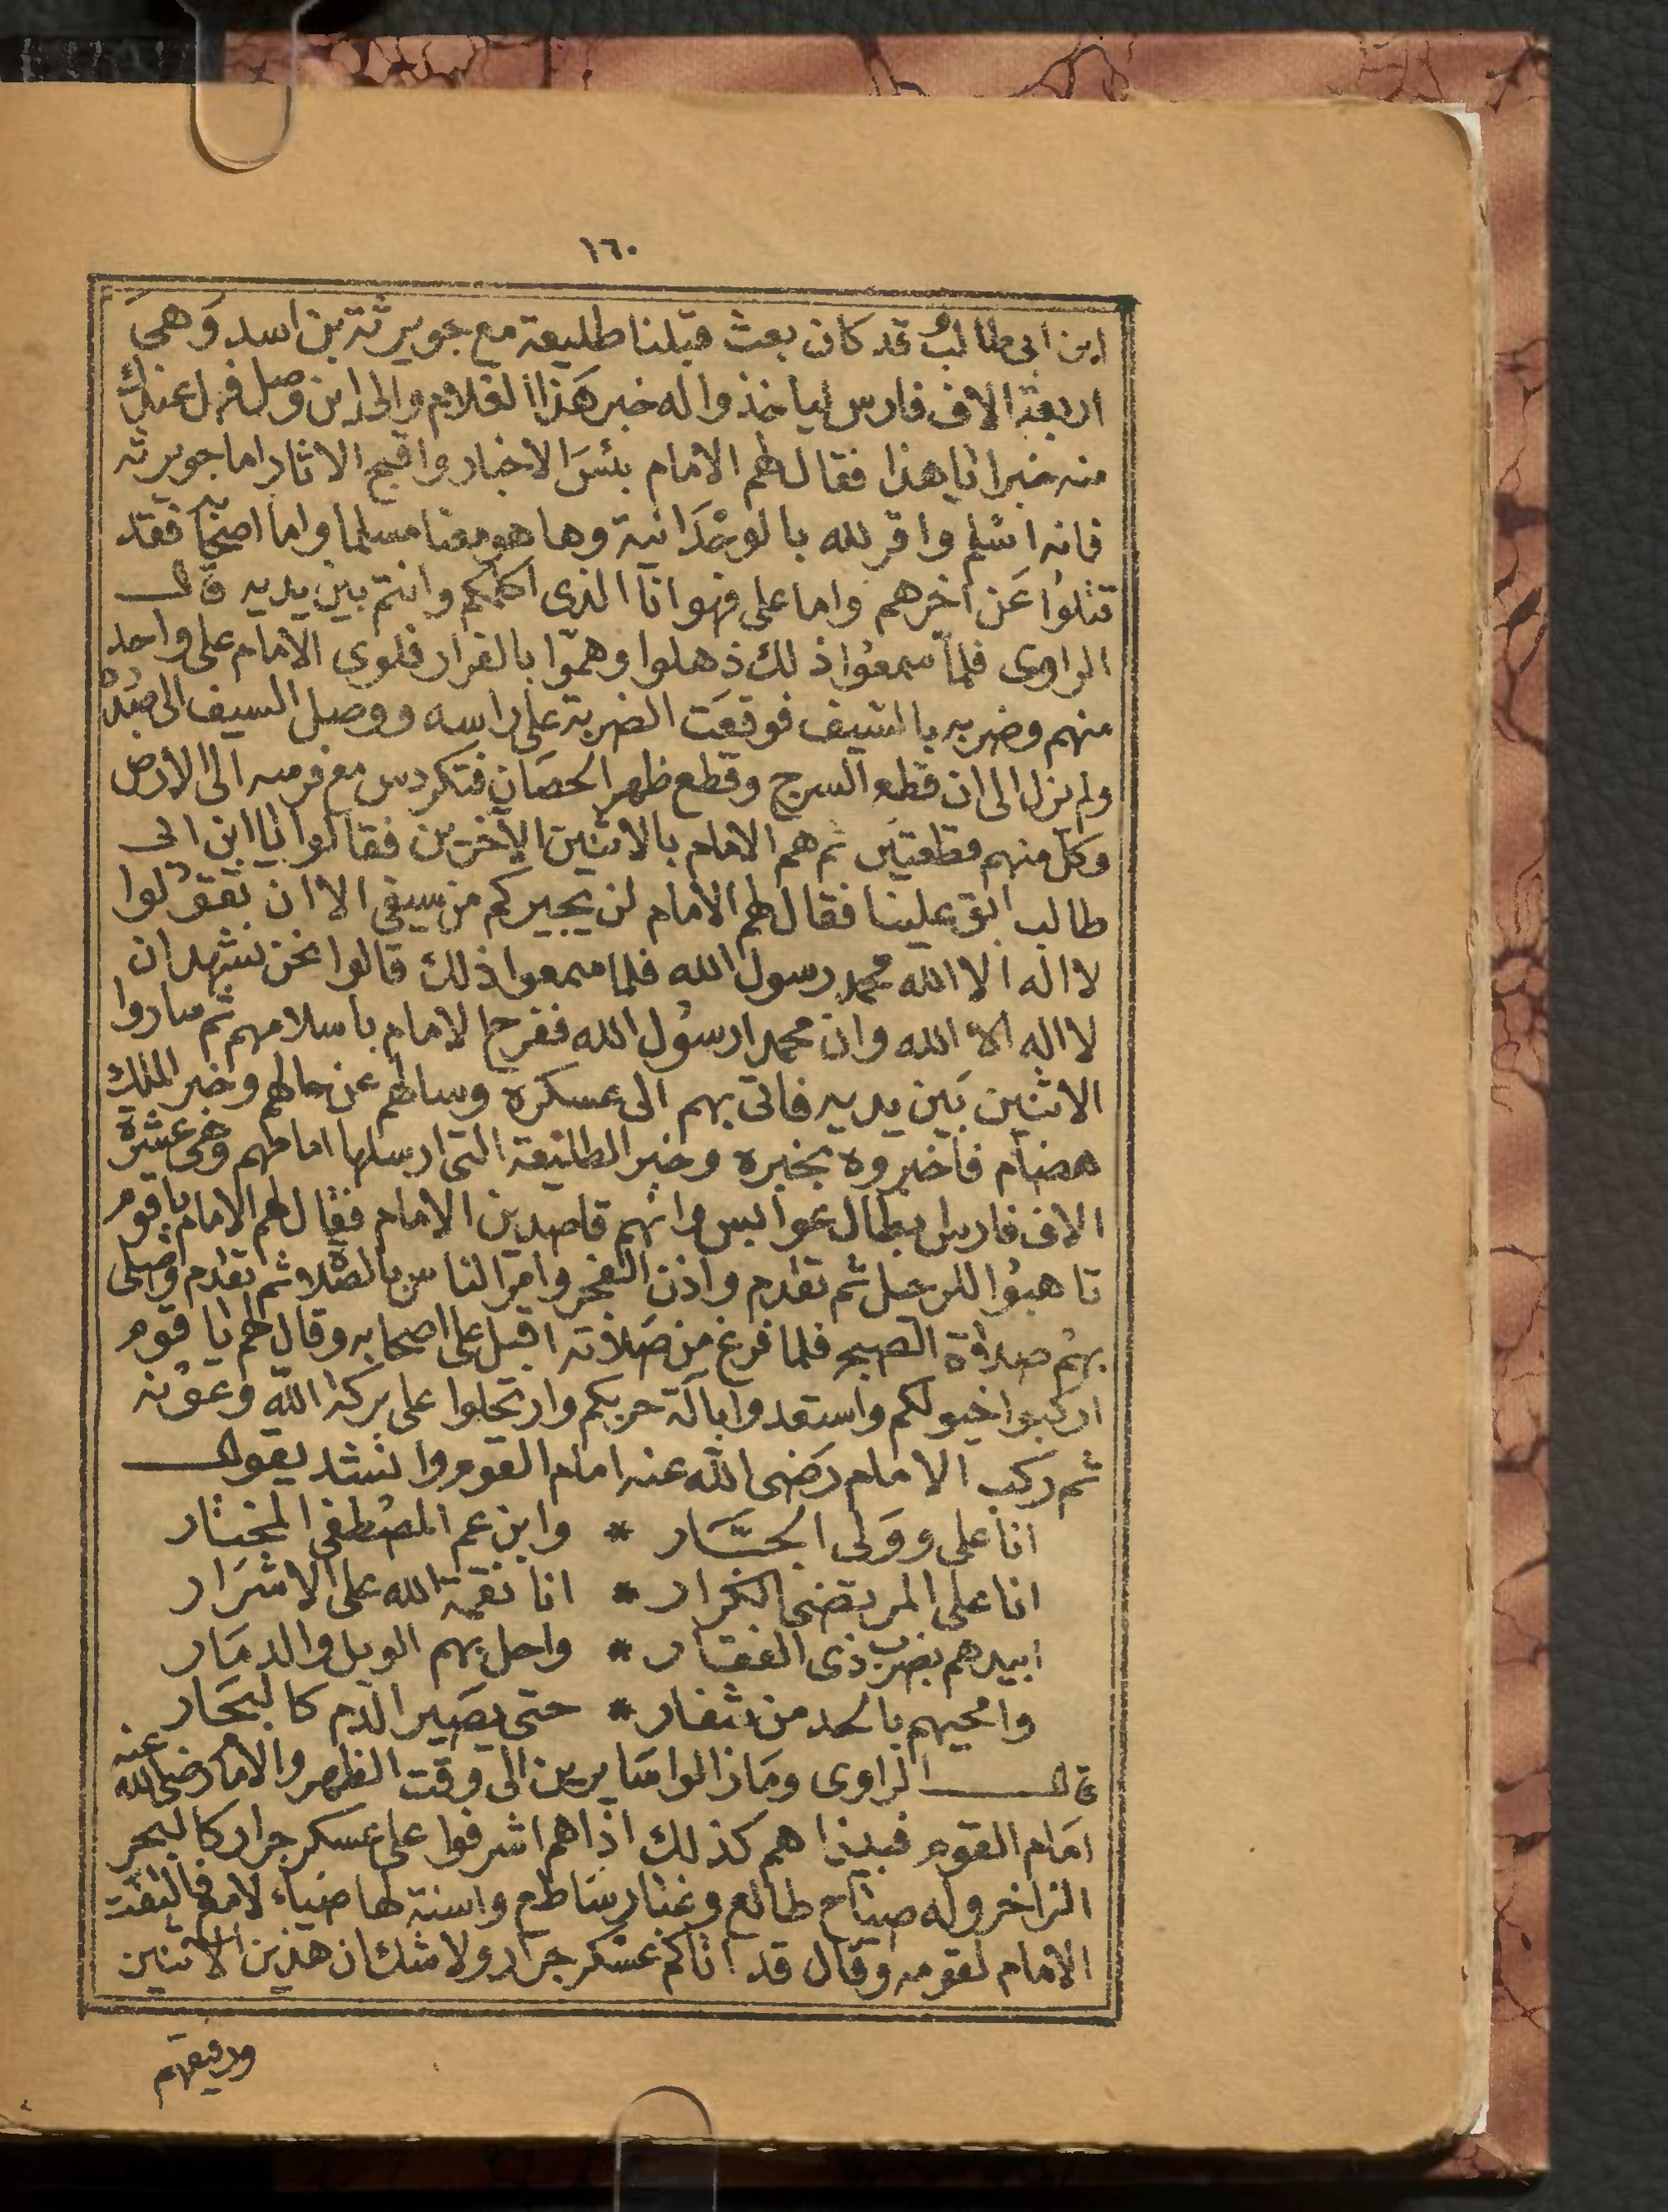 ١٦٠
ابن ابى طالب قد كان بعث قبلنا طليعة مع جويرثة بن اسد وهى
اربعة الاف فارس لياخذوا له خبر هذا الغلام والى اين وصل فهل عندك
منه خبرا ناهذا فقال لهم الامام بئس الاخبار واقبح الاثار اما جويرثه
فانه اسلم واقر لله بالوحدانية وها هو معنا مسلما واما اصحابه فقد
قتلوا عن اخرهم واما على فهو انا الذى اكلمكم وانتم بين يديه قال
الراوى فلما سمعوا ذلك ذهلوا وهموا بالفرار فلوى الامام على واحد
منهم وضربه بالسيف فوقعت الضربة على راسه ووصل السيف الى صدره
ولم نزل الى ان قطع السرج وقطع ظهر الحصان فتكردس مع فرسه الى الارض
وكل منهم قطعتين ثم هم الامام بالاثنين الآخرين فقالوا يا ابن ابى
طالب ابق علينا فقال لهم الامام لن يجيركم من سيفى الا ان تقولوا
لا اله الا الله محمد رسول الله فلما سمعوا ذلك قالوا نحن نشهد ان
لا اله الا الله وان محمدا رسول الله ففرح الامام باسلامهم ثم ساروا
الاثنين بين يديه فاتى بهم الى عسكره وسالهم عن حالهم وخبر الملك
هضام فاخبروه بخبره وخبر الطليعة التى ارسلها امامهم وهى عشرة
الاف فارس بطال عوابس وانهم قاصدين الامام فقال لهم الامام يا قوم
تاهبوا للرحيل ثم تقدم واذن الفجر وامر الناس بالصلاة ثم تقدم وصلى
بهم صلاة الصبح فلما فرغ من صلاته اقبل على اصحابه وقال لهم يا قوم
اركبوا خيولكم واستعدوا بآلة حربكم وارتحلوا على بركة الله وعونه
ثم ركب الامام رضى الله عنه امام القوم وانشد يقول
انا على وولى الجبار * وابن عم المصطفى المختار
انا على المرتضى الكرار * انا نقمة الله على الاشرار
ابيدهم بضرب ذى الفقار * واحل بهم الويل والدمار
وامحيهم بالحد من شفار * حتى يصير الدم كالبحار
قال الراوى ومازالوا سايرين الى وقت الظهر والامام رضى الله عنه
امام القوم فبينما هم كذلك اذا هم اشرفوا على عسكر جرار كالبحر
الزاخر وله صياح طالع وغبار ساطع واسنة لها ضياء لامع فالتفت
الامام لقومه وقال قد اتاكم عسكر جرار ولا شك ان هذين الاثنين
ورفيقهم